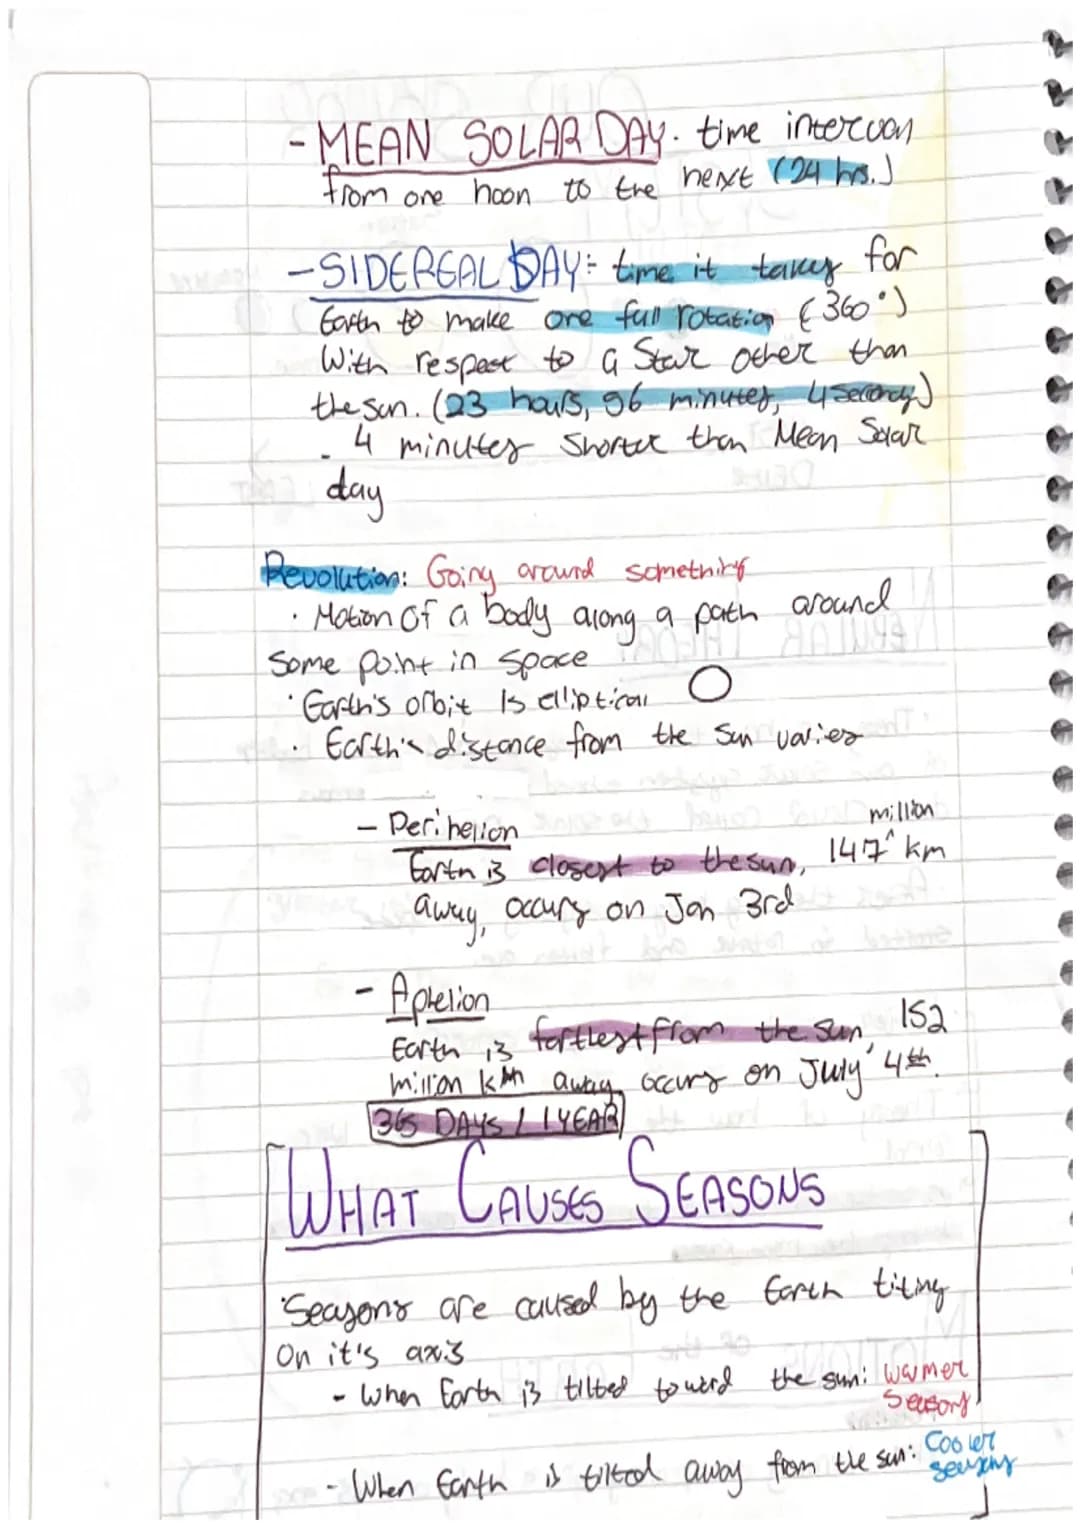 - MEAN SOLAR DAY. time interval
from one noon to the next (24 hrs.)
- SIDEREAL DAY: time it takes for
Earth to make one full rotation (360°)
With respect to a Star other than
the sun. (23 hours, 56 minutes, 4 seconds)
- 4 minutes Shorter than Mean Solar
day
Revolution: Going around something
· Motion of a body along a path around
Some point in space
· Earth's orbit Is elliptical
· Earth's distance from the Sun varies
- Perihelion
million
Earth is closest to the sun, 147^ km
away, occurs on Jan 3rd
- Aphelion
Earth is farthest from the sun, 152
million km away, occurs on July 4th.
365 DAYS / 1 YEAR
WHAT CAUSES SEASONS
· Seasons are caused by the Earth tilting
On it's axis
- When Earth is tilted toward the sun: warmer
Seasons
- When Earth is tilted away from the sun: Cooler
seasons